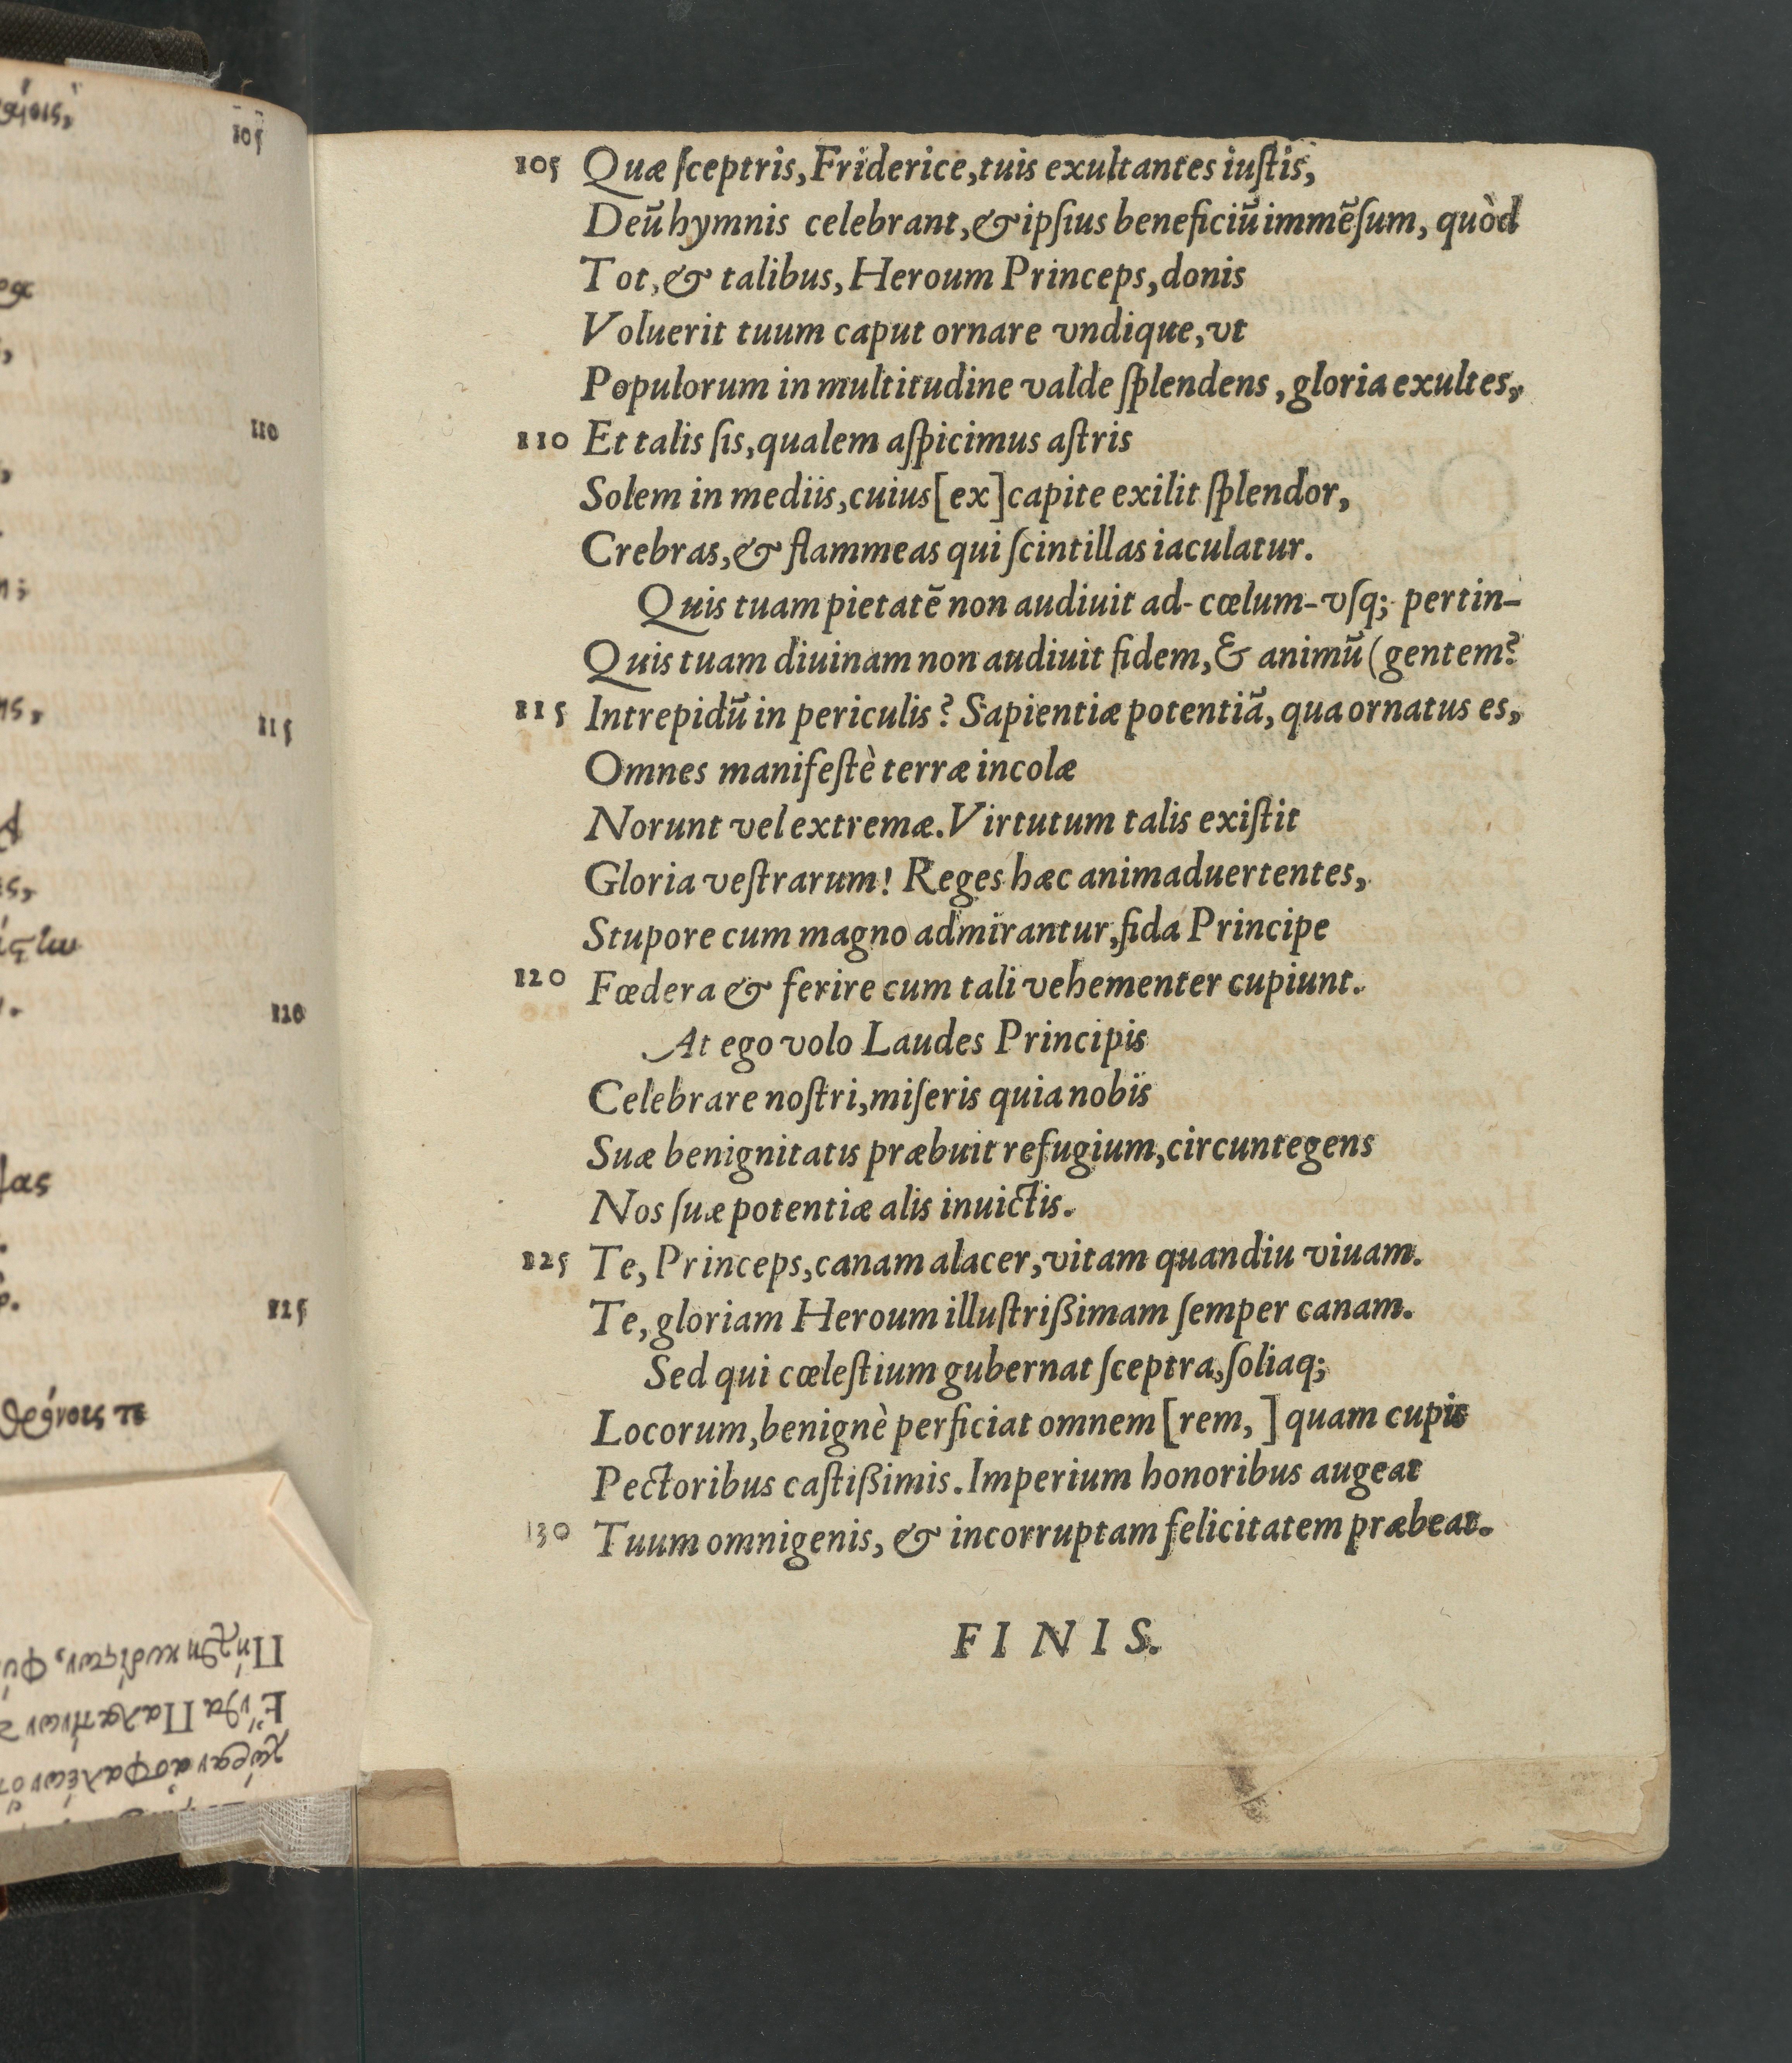 105 Quæ ſceptris, Friderice, tuis exultantes iuſtis,
Deū hymnis celebrant, & ipſius beneficiū immēſum, quòd
Tot, & talibus, Heroum Princeps, donis
Voluerit tuum caput ornare vndique, vt
Populorum in multitudine valde ſplendens, gloria exultes,
110 Et talis ſis, qualem aſpicimus aſtris
Solem in mediis, cuius [ex] capite exilit ſplendor,
Crebras, & flammeas qui ſcintillas iaculatur.
Quis tuam pietatē non audiuit ad-cœlum-vſq; pertin-
Quis tuam diuinam non audiuit fidem, & animū (gentem?
115 Intrepidū in periculis? Sapientiæ potentiā, qua ornatus es,
Omnes manifeſtè terræ incolæ
Norunt vel extremæ. Virtutum talis exiſtit
Gloria veſtrarum! Reges hæc animaduertentes,
Stupore cum magno admirantur, fida Principe
120 Fœdera & ferire cum tali vehementer cupiunt.
At ego volo Laudes Principis
Celebrare noſtri, miſeris quia nobis
Suæ benignitatis præbuit refugium, circuntegens
Nos ſuæ potentiæ alis inuictis.
125 Te, Princeps, canam alacer, vitam quandiu viuam.
Te, gloriam Heroum illuſtrißimam ſemper canam.
Sed qui cœleſtium gubernat ſceptra, ſoliaq;
Locorum, benignè perficiat omnem [rem, ] quam cupis
Pectoribus caſtißimis. Imperium honoribus augeat
130 Tuum omnigenis, & incorruptam felicitatem præbeat.
FINIS.
105
110
115
120
θρήνοις τε
125